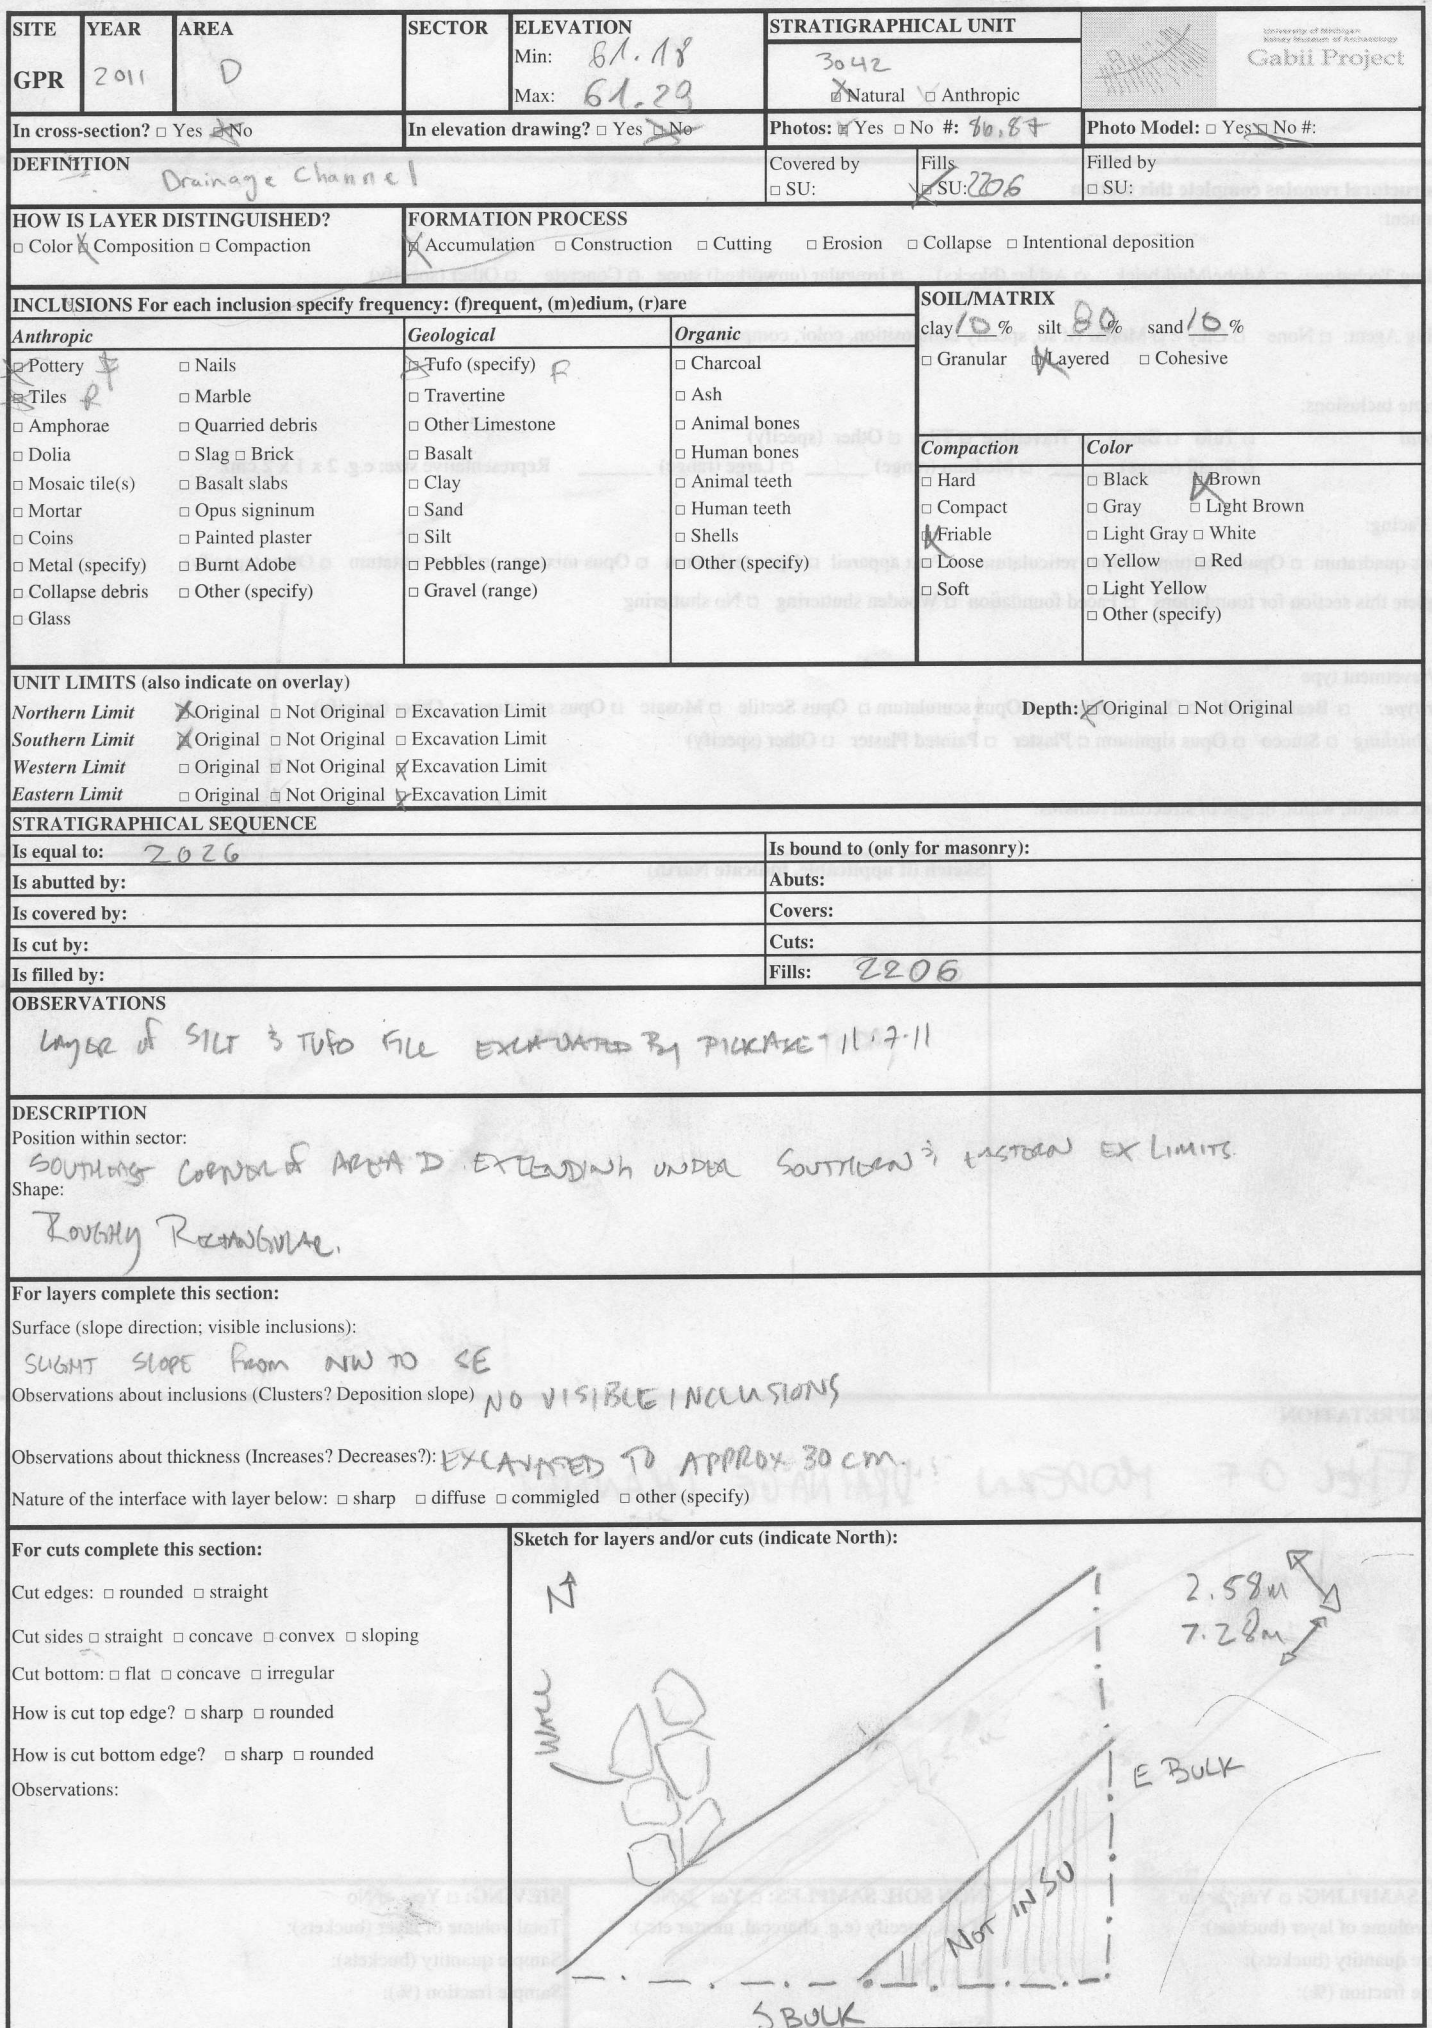 SITE YEAR AREA SECTOR ELEVATION STRATIGRAPHICAL UNIT
GPR 2011 D Min: 61.18 3042
Max: 61.29 Natural Anthropic
University of Michigan
Kelsey Museum of Archaeology
Gabii Project
In cross-section? □ Yes □ No In elevation drawing? □ Yes □ No Photos: □ Yes □ No #: 86,87 Photo Model: □ Yes □ No #:
DEFINITION Drainage Channel
Covered by □ SU:
Fills □ SU: 2206
Filled by □ SU:
HOW IS LAYER DISTINGUISHED?
□ Color □ Composition □ Compaction
FORMATION PROCESS
□ Accumulation □ Construction □ Cutting □ Erosion □ Collapse □ Intentional deposition
INCLUSIONS For each inclusion specify frequency: (f)requent, (m)edium, (r)are
Anthropic
□ Pottery F □ Nails
□ Tiles R □ Marble
□ Amphorae □ Quarried debris
□ Dolia □ Slag □ Brick
□ Mosaic tile(s) □ Basalt slabs
□ Mortar □ Opus signinum
□ Coins □ Painted plaster
□ Metal (specify) □ Burnt Adobe
□ Collapse debris □ Other (specify)
□ Glass
Geological
□ Tufo (specify) F
□ Travertine
□ Other Limestone
□ Basalt
□ Clay
□ Sand
□ Silt
□ Pebbles (range)
□ Gravel (range)
Organic
□ Charcoal
□ Ash
□ Animal bones
□ Human bones
□ Animal teeth
□ Human teeth
□ Shells
□ Other (specify)
SOIL/MATRIX
clay 10 % silt 80 % sand 10 %
□ Granular □ Layered □ Cohesive
Compaction
□ Hard
□ Compact
□ Friable
□ Loose
□ Soft
Color
□ Black □ Brown
□ Gray □ Light Brown
□ Light Gray □ White
□ Yellow □ Red
□ Light Yellow
□ Other (specify)
UNIT LIMITS (also indicate on overlay)
Northern Limit □ Original □ Not Original □ Excavation Limit Depth: □ Original □ Not Original
Southern Limit □ Original □ Not Original □ Excavation Limit
Western Limit □ Original □ Not Original □ Excavation Limit
Eastern Limit □ Original □ Not Original □ Excavation Limit
STRATIGRAPHICAL SEQUENCE
Is equal to: 2026 Is bound to (only for masonry):
Is abutted by: Abuts:
Is covered by: Covers:
Is cut by: Cuts:
Is filled by: Fills: 2206
OBSERVATIONS
LAYER of SILT & TUFO FILL EXCAVATED By PICKAXE 11.7.11
DESCRIPTION
Position within sector:
SOUTHEAST CORNER of AREA D EXTENDING UNDER SOUTHERN & EASTERN EX LIMITS.
Shape:
ROUGHLY RECTANGULAR.
For layers complete this section:
Surface (slope direction; visible inclusions):
SLIGHT SLOPE from NW TO SE
Observations about inclusions (Clusters? Deposition slope) NO VISIBLE INCLUSIONS
Observations about thickness (Increases? Decreases?): EXCAVATED TO APPROX 30 cm.
Nature of the interface with layer below: □ sharp □ diffuse □ commigled □ other (specify)
For cuts complete this section:
Cut edges: □ rounded □ straight
Cut sides □ straight □ concave □ convex □ sloping
Cut bottom: □ flat □ concave □ irregular
How is cut top edge? □ sharp □ rounded
How is cut bottom edge? □ sharp □ rounded
Observations:
Sketch for layers and/or cuts (indicate North):
N
2.58m
7.28m
WALL
E BULK
NOT IN SU
S BULK